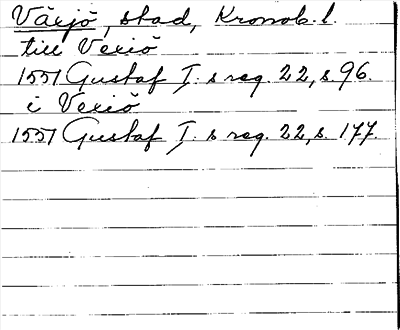 Växjö, stad, Kronob. l.
till Vexiö
1551 Gustaf I. s reg. 22, s 96.
i Vexiö
1551 Gustaf I. s reg. 22, s. 177.